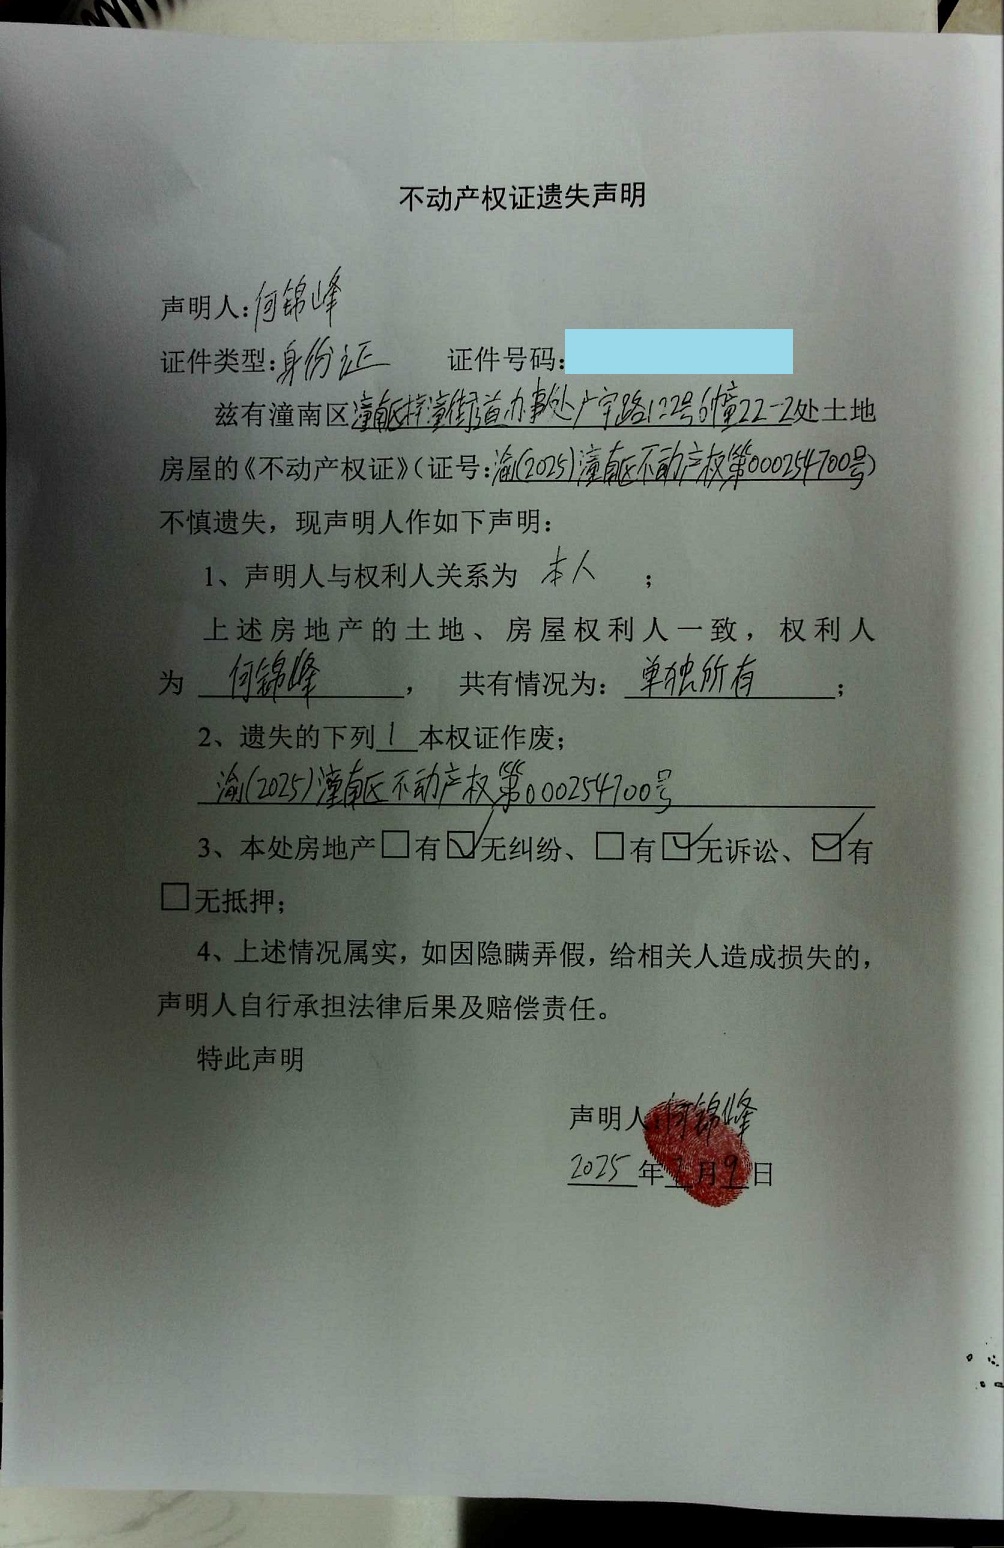 不动产权证遗失声明
声明人:何锦峰
证件类型:身份证 证件号码:
兹有潼南区潼南区梓潼街道办事处广宇路122号6幢22-2处土地
房屋的《不动产权证》(证号:渝(2025)潼南区不动产权第000254700号)
不慎遗失，现声明人作如下声明:
1、声明人与权利人关系为 本人 ;
上述房地产的土地、房屋权利人一致，权利人
为 何锦峰 ， 共有情况为: 单独所有 ;
2、遗失的下列 1 本权证作废;
渝(2025)潼南区不动产权第000254700号
3、本处房地产□有☑无纠纷、□有☑无诉讼、☑有
□无抵押;
4、上述情况属实，如因隐瞒弄假，给相关人造成损失的，
声明人自行承担法律后果及赔偿责任。
特此声明
声明人:何锦峰
2025 年 月 9 日